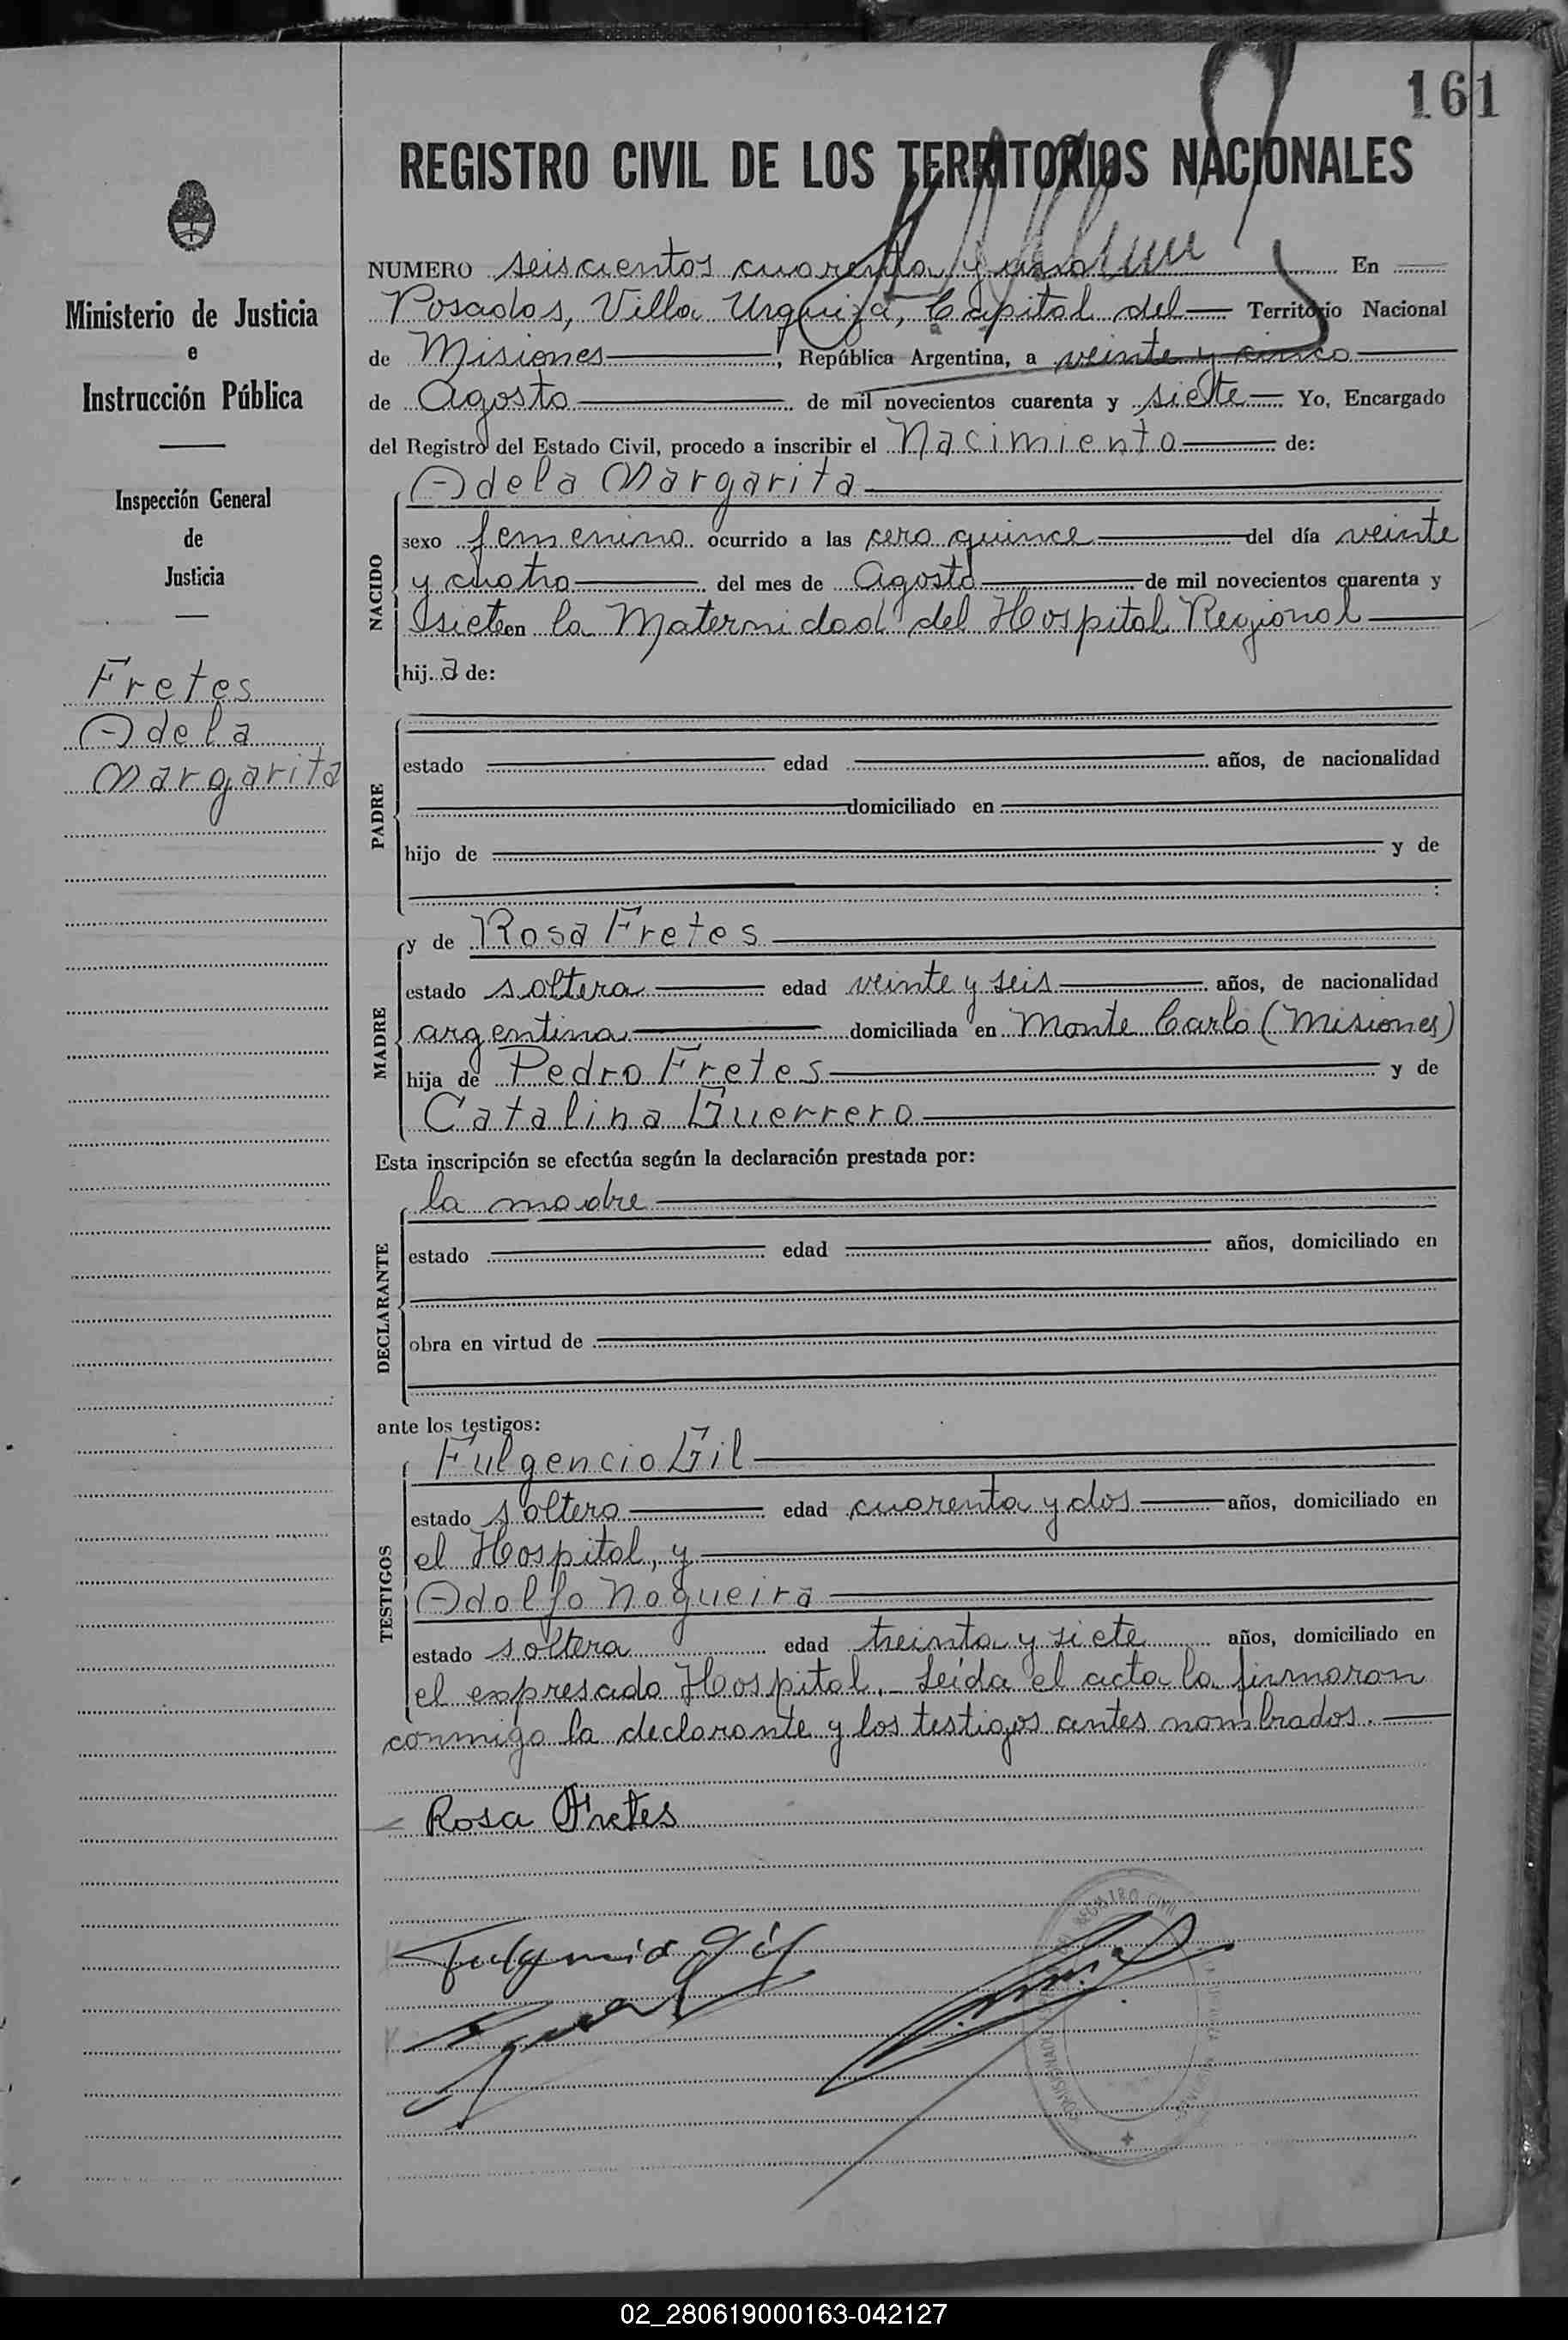 161
REGISTRO CIVIL DE LOS TERRITORIOS NACIONALES
Ministerio de Justicia
e
Instrucción Pública
Inspección General
de
Justicia
Fretes
Adela
Margarita
NUMERO seiscientos cuarenta y uno En
Posadas, Villa Urquiza, Capital del Territorio Nacional
de Misiones, República Argentina, a veinte y cinco
de Agosto de mil novecientos cuarenta y siete Yo, Encargado
del Registro del Estado Civil, procedo a inscribir el Nacimiento de:
NACIDO
Adela Margarita
sexo femenino ocurrido a las cero quince del día veinte
y cuatro del mes de Agosto de mil novecientos cuarenta y
siete en la Maternidad del Hospital Regional
hij a de:
PADRE
estado edad años, de nacionalidad
domiciliado en
hijo de y de
:
MADRE
y de Rosa Fretes
estado soltera edad veinte y seis años, de nacionalidad
argentina domiciliada en Monte Carlo (Misiones)
hija de Pedro Fretes y de
Catalina Guerrero
Esta inscripción se efectúa según la declaración prestada por:
DECLARANTE
la madre
estado edad años, domiciliado en
obra en virtud de
ante los testigos:
TESTIGOS
Fulgencio Gil
estado soltero edad cuarenta y dos años, domiciliado en
el Hospital, y
Adolfo Nogueira
estado soltera edad treinta y siete años, domiciliado en
el expresado Hospital.- Leída el acta la firmaron
conmigo la declarante y los testigos antes nombrados.
Rosa Fretes
Fulgencio Gil
REGISTRO CIVIL
02_280619000163-042127